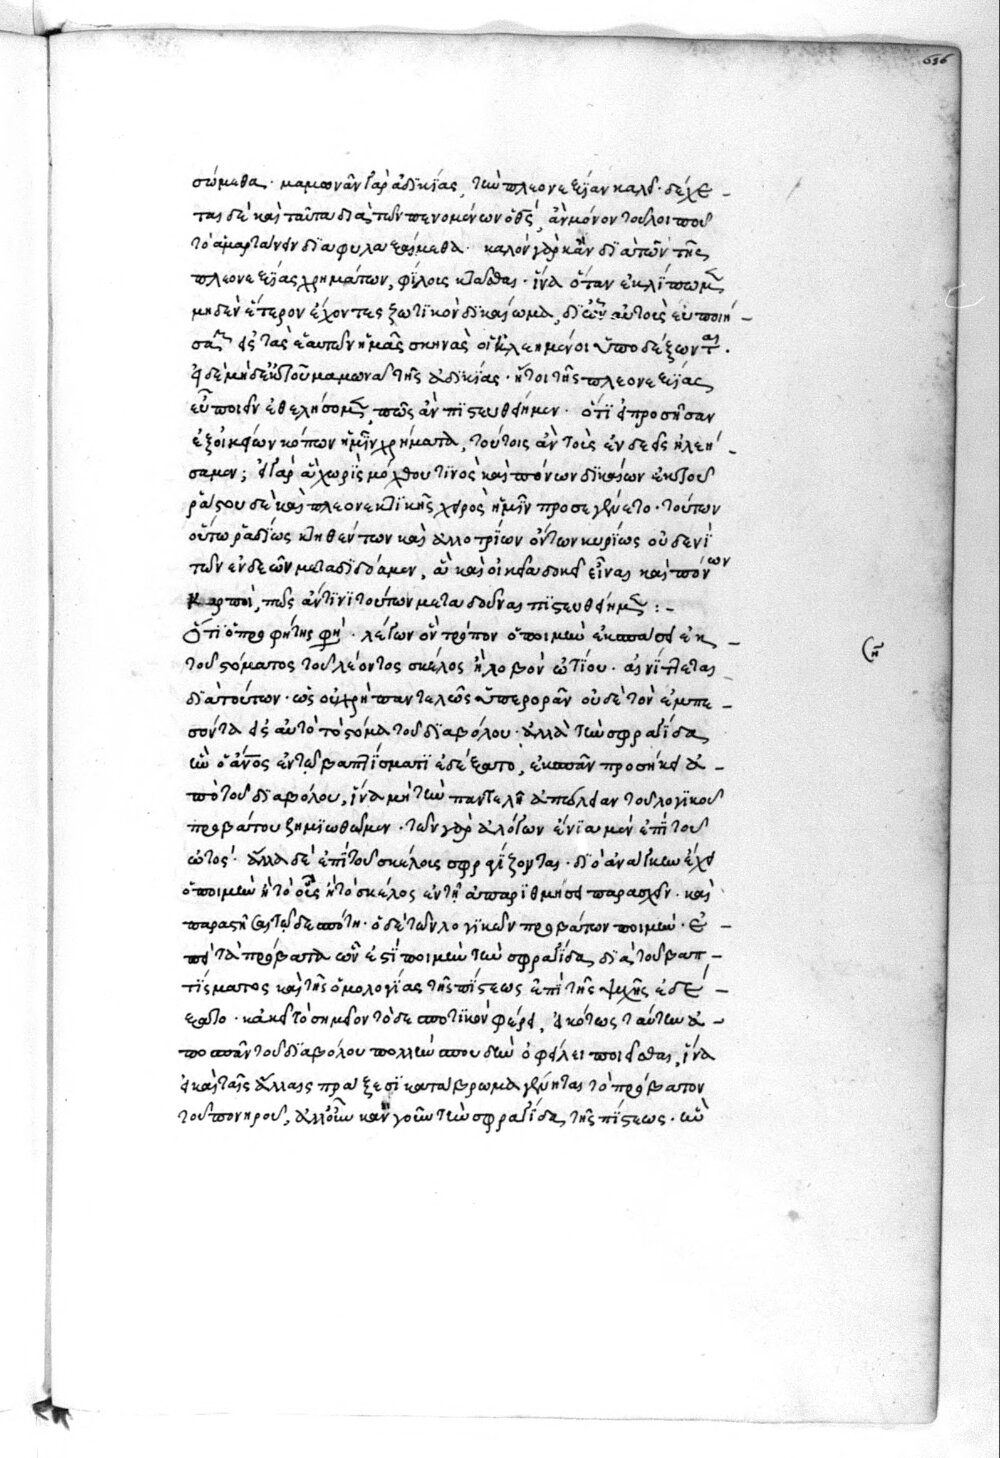 616
σώμεθα· μαμωνᾶν γὰρ ἀδικίας, τὴν πλεονεξίαν καλεῖ· δέχε
ται δὲ καὶ ταῦτα διὰ τῶν πενομένων ὁ θς, ἂν μόνον τοῦ λοιποῦ
τὸ ἁμαρτάνειν διαφυλαξώμεθα· καλὸν γὰρ κἂν δι' αὐτῶν τῆς
πλεονεξίας χρημάτων, φίλοις κτᾶσθαι· ἵνα ὅταν ἐκλίπωμεν
μηδὲν ἕτερον ἔχοντες ζωτικὸν δικαίωμα, δι' ὧν αὐτοὺς εὐποιή
σαμεν εἰς τὰς ἑαυτῶν ἡμᾶς σκηνὰς οἱ ἐλεημένοι ὑποδέξωνται·
εἰ δὲ μηδὲ ἐκ τοῦ μαμωνᾶ τῆς ἀδικίας· ἤτοι τῆς πλεονεξίας
εὖ ποιεῖν ἐθελήσομεν, πῶς ἂν πιστευθείημεν· ὅτι εἰ προσῆσαν
ἐξ οἰκείων κόπων ἡμῖν χρήματα, τούτοις ἂν τοὺς ἐνδεεῖς ἠλεή
σαμεν; εἰ γὰρ ἃ χωρὶς μόχθου τινὸς καὶ πόνων δικαίων ἐκ τοῦ
ῥάστου δὲ καὶ πλεονεκτικῆς χειρὸς ἡμῖν προσεγένετο· τούτων
οὕτω ῥᾳδίως κτηθέντων καὶ ἀλλοτρίων ὄντων κυρίως οὐδενὶ
τῶν ἐνδεῶν μεταδιδόαμεν, ἃ καὶ οἰκεῖα δοκεῖ εἶναι καὶ πόνων
καρποὶ, πῶς ἄν τινι τούτων μεταδοῦναι πιστευθείημεν :-
Ὅτι ὁ προφήτης φησὶ· λέγων ὃν τρόπον ὁ ποιμὴν ἐκσπάσει ἐκ
τοῦ στόματος τοῦ λέοντος σκέλος ἢ λοβὸν ὠτίου· αἰνίττεται
διὰ τούτων· ὡς οὐ χρὴ παντελῶς ὑπερορᾶν οὐδὲ τὸν ἐμπε
σόντα εἰς αὐτὸ τὸ στόμα τοῦ διαβόλου· ἀλλὰ τὴν σφραγῖδα
ἣν ὁ ἄνος ἐν τῷ βαπτίσματι ἐδέξατο, ἐκσπᾶν προσήκει ἀ
πὸ τοῦ διαβόλου, ἵνα μὴ τὴν παντελῆ ἀπώλειαν τοῦ λογικοῦ
προβάτου ζημιωθῶμεν· τῶν γὰρ ἀλόγων ἔνια μὲν ἐπὶ τοῦ
ὠτὸς· ἄλλα δὲ ἐπὶ τοῦ σκέλους σφραγίζονται· διὸ ἀνάγκην ἔχει
ὁ ποιμὴν ἢ τὸ οὖς ἢ τὸ σκέλος ἐν τῇ ἀπαριθμήσει παρασχεῖν· καὶ
παραστῆσαι τῷ δεσπότῃ· ὁ δὲ τῶν λογικῶν προβάτων ποιμὴν· ἐ
πεὶ τὰ πρόβατα ὧν ἐστὶ ποιμὴν τὴν σφραγῖδα διὰ τοῦ βαπ
τίσματος καὶ τῆς ὁμολογίας τῆς πίστεως ἐπὶ τῆς ψυχῆς ἐδέ
ξατο· κἀκεῖ τὸ σημεῖον τὸ δεσποτικὸν φέρει, εἰκότως ταύτην ἀ
ποσπᾶν τοῦ διαβόλου πολλὴν σπουδὴν ὀφείλει ποιεῖσθαι, ἵνα
εἰ καὶ ταῖς ἄλλαις πράξεσι κατάβρωμα γένηται τὸ πρόβατον
τοῦ πονηροῦ, ἀλλ' οὖν κἂν γοῦν τὴν σφραγῖδα τῆς πίστεως· ἣν